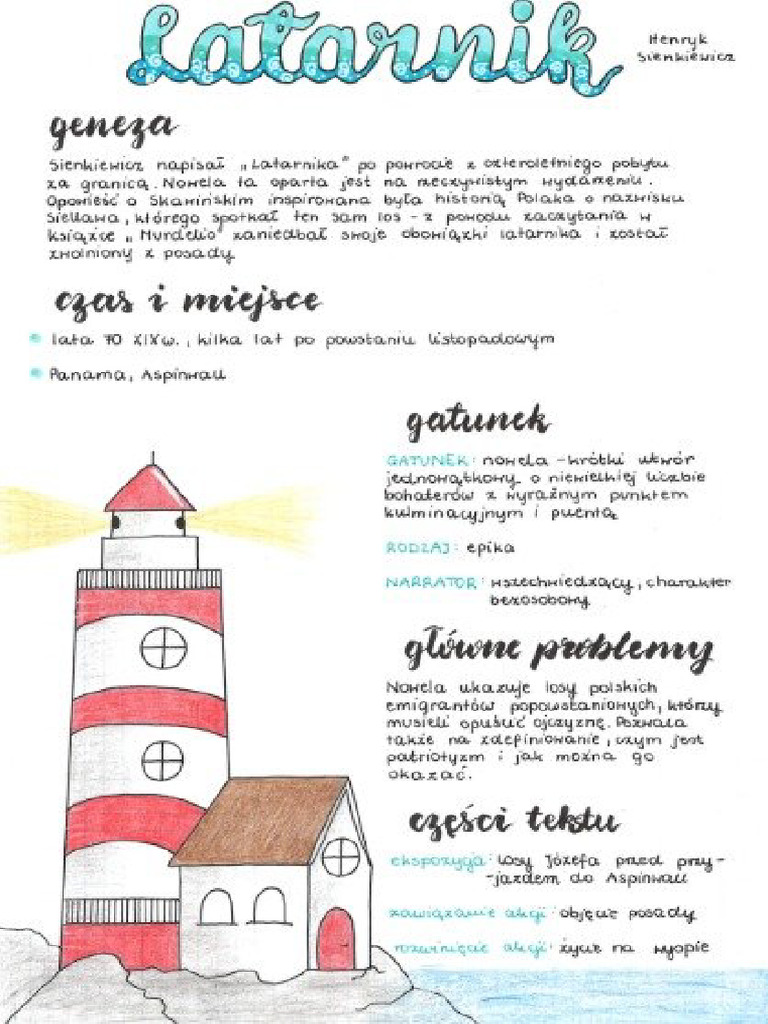 Latarnik
Henryk
Sienkiewicz
geneza
Sienkiewicz napisał „Latarnika" po powrocie z czteroletniego pobytu
za granicą. Nowela ta oparta jest na rzeczywistym wydarzeniu.
Opowieść o Skawińskim inspirowana była historią Polaka o nazwisku
Siellawa, którego spotkał ten sam los - z powodu zaczytania w
książce „Murdelio" zaniedbał swoje obowiązki latarnika i został
zwolniony z posady
czas i miejsce
lata 70 XIX w., kilka lat po powstaniu listopadowym
Panama, Aspinwall
gatunek
GATUNEK: nowela - krótki utwór
jednowątkowy o niewielkiej liczbie
bohaterów z wyraźnym punktem
kulminacyjnym i puentą
RODZAJ: epika
NARRATOR: wszechwiedzący, charakter
bezosobowy
główne problemy
Nowela ukazuje losy polskich
emigrantów popowstaniowych, którzy
musieli opuścić ojczyznę. Pozwala
także na zdefiniowanie, czym jest
patriotyzm i jak można go
okazać.
części tekstu
ekspozycja: losy Józefa przed przy-
-jazdem do Aspinwall
zawiązanie akcji: objęcie posady
rozwinięcie akcji: życie na wyspie